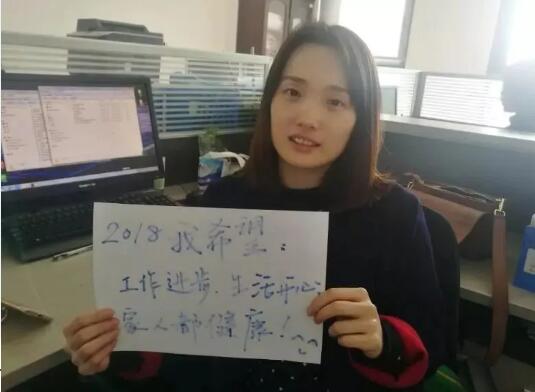 2018 我希望：
工作进步、生活开心
家人都健康！